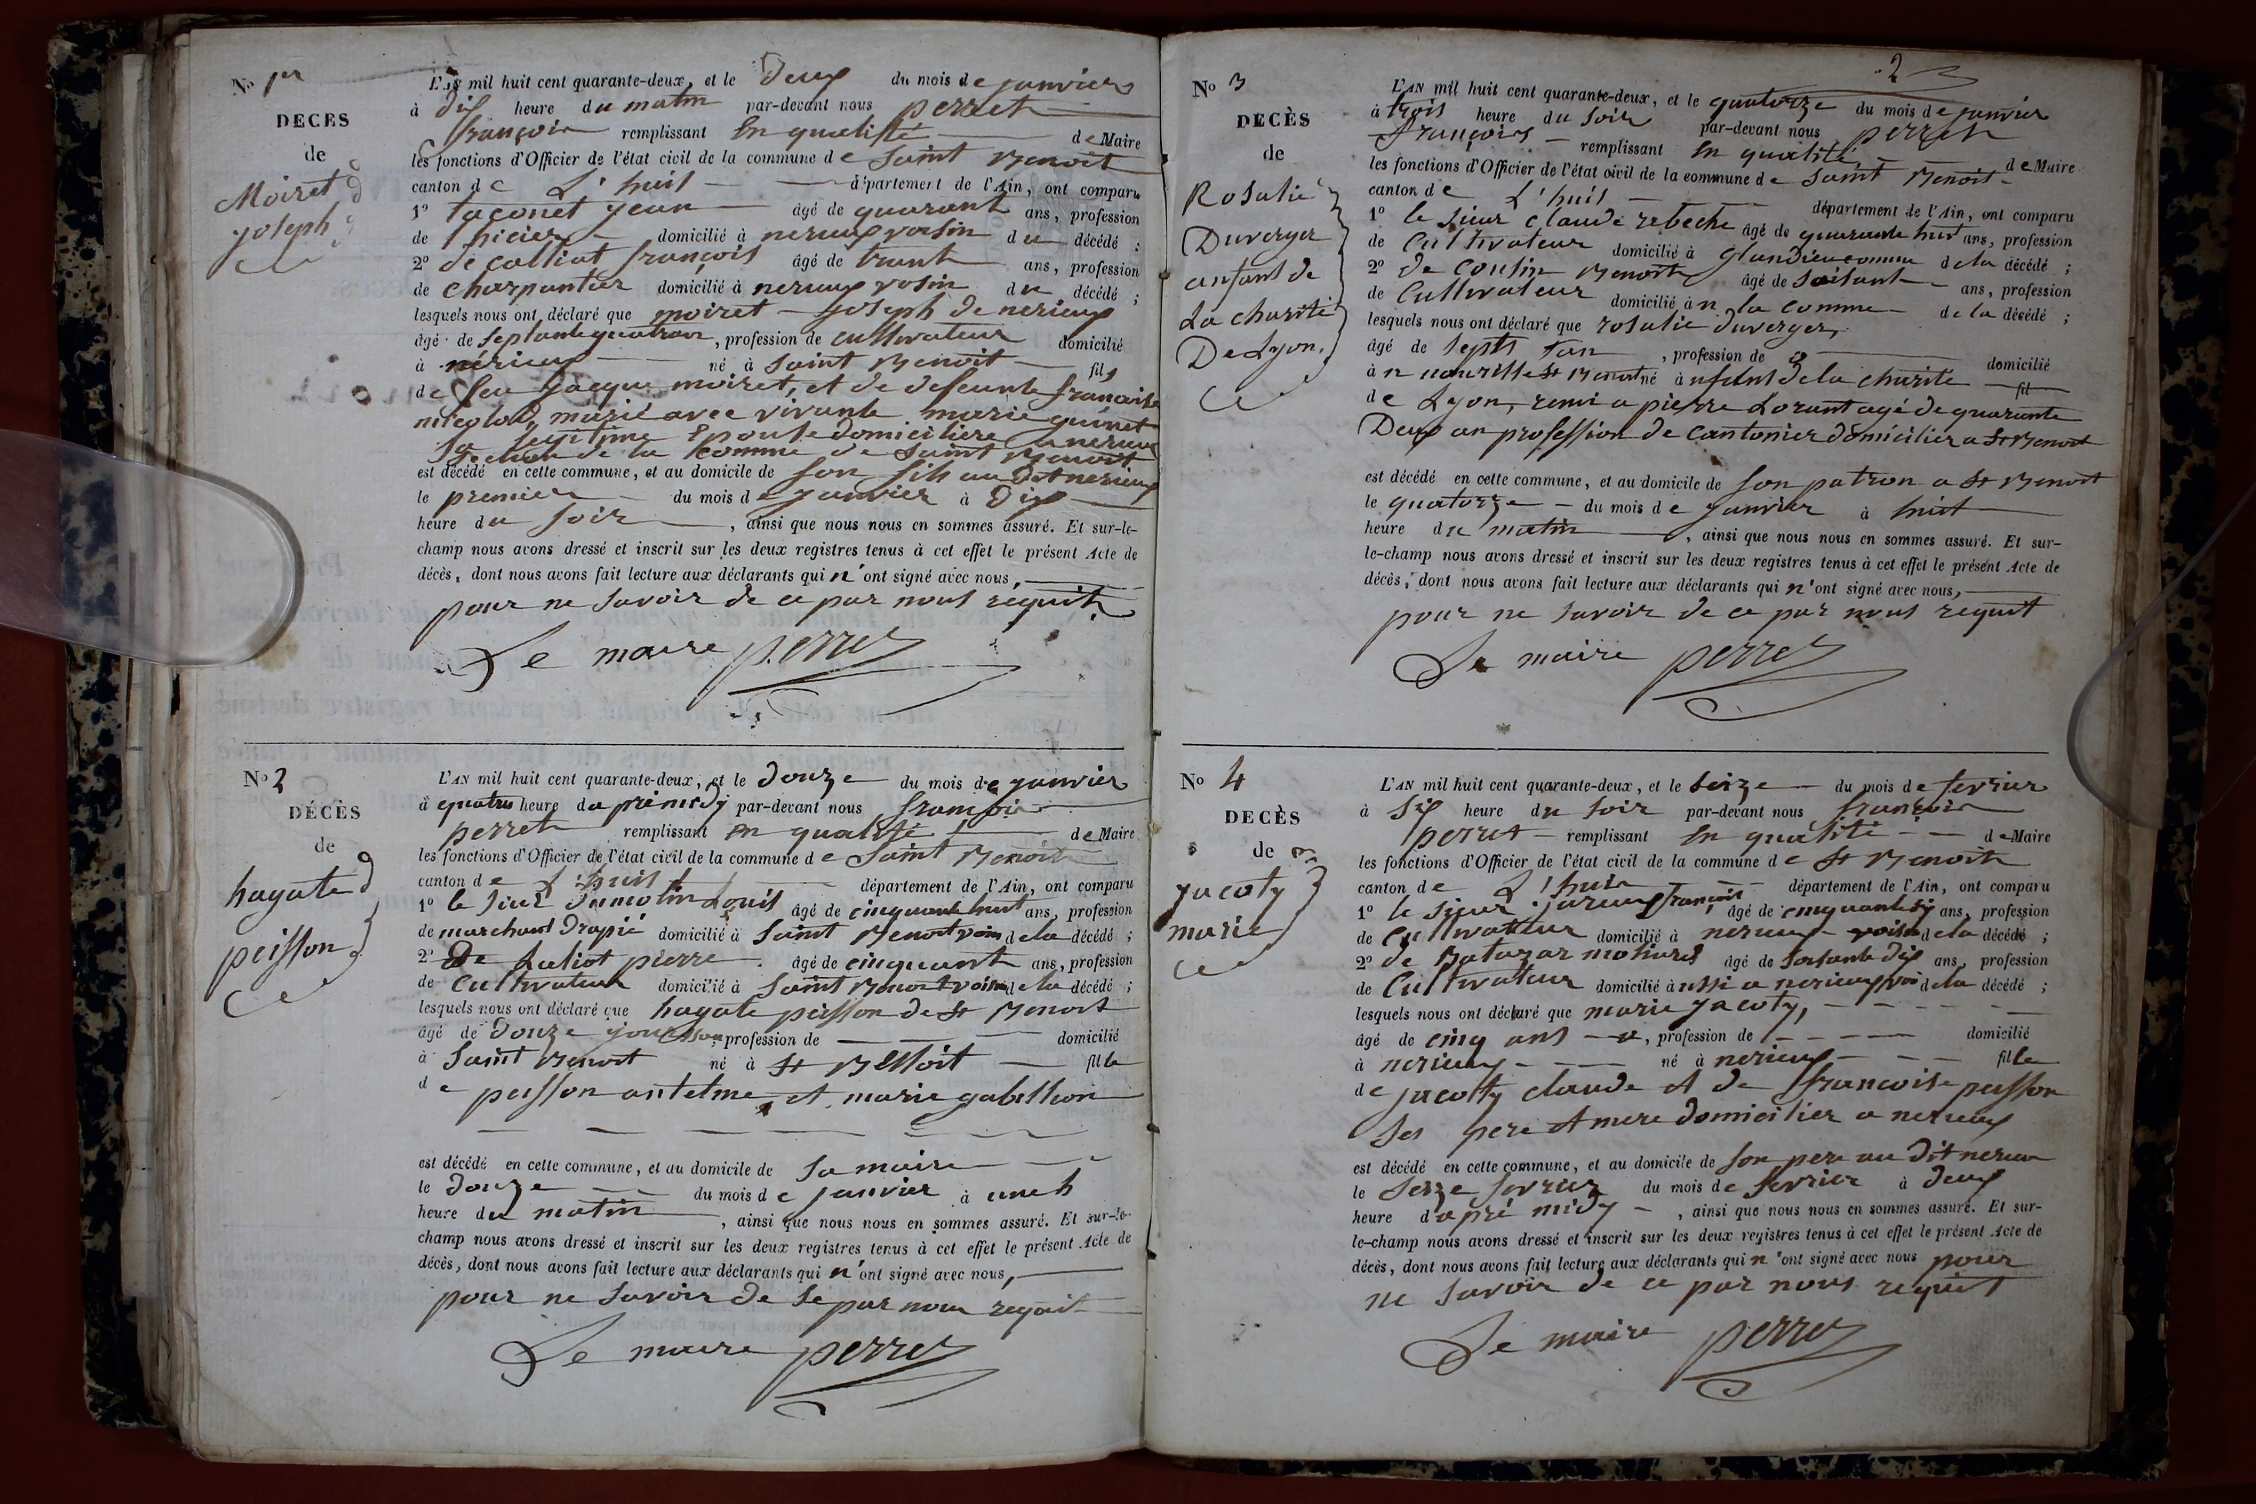 No 1er
DECES
de
Moiret
joseph
L'AN mil huit cent quarante-deux, et le deux du mois de janvier
à dix heure du matin par-devant nous perret
françois remplissant En qualité de Maire
les fonctions d'Officier de l'état civil de la commune de saint Benoit
canton de L'huis département de l'Ain, ont comparu
1° taconet jean âgé de quarant ans, profession
de Epicier domicilié à nerieux voisin du décédé ;
2° de calliat françois âgé de trant ans, profession
de charpantier domicilié à nerieux vosin du décédé ;
lesquels nous ont déclaré que moiret joseph de nerieux
âgé de septante quatre an, profession de cultivateur domicilié
à nérieux né à saint Benoit fils
de feu jacque moiret, et de defeunte francoise
nicolod, marié avec vivante marie guinet
sa legitime Epouse domiciliere a nerieux
section de la comme de saint Benoit
est décédé en cette commune, et au domicile de son fils au dit nerieux
le premier du mois de janvier à dix
heure du soir, ainsi que nous nous en sommes assuré. Et sur-le-
champ nous avons dressé et inscrit sur les deux registres tenus à cet effet le présent Acte de
décès, dont nous avons fait lecture aux déclarants qui n'ont signé avec nous,
pour ne savoir de ce par nous requit
Le maire perret
No 2
DÉCÈS
de
hagate
peisson
L'AN mil huit cent quarante-deux, et le douze du mois de janvier
à quatres heure da prémidy par-devant nous francois
perret remplissant En qualité de Maire
les fonctions d'Officier de l'état civil de la commune de saint Benoit
canton de L'huis département de l'Ain, ont comparu
1° le sieur dumolin Louis âgé de cinquante huit ans, profession
de marchand drapié domicilié à saint Benoit voisin de la décédé ;
2° De Luliot pierre âgé de cinquant ans, profession
de Cultivateur domicilié à saint Benoit voisin de la décédé ;
lesquels nous ont déclaré que hagate peisson de st Benoit
âgé de Douze jour, profession de domicilié
à saint Benoit né à st Benoit fille
de peisson antelme, et marie gabillion
est décédé en cette commune, et au domicile de sa maire
le douze du mois de janvier à une h
heure du matin, ainsi que nous nous en sommes assuré. Et sur-le-
champ nous avons dressé et inscrit sur les deux registres tenus à cet effet le présent Acte de
décès, dont nous avons fait lecture aux déclarants qui n'ont signé avec nous,
pour ne savoir de se par nous requit
Le maire perret
2
No 3
DECÈS
de
Rosalie
Duverger
anfant de
La charité
De Lyon,
L'AN mil huit cent quarante-deux, et le quatorze du mois de janvier
à trois heure du soir par-devant nous perret
françois remplissant En qualité de Maire
les fonctions d'Officier de l'état civil de la commune de saint Benoit
canton de L'huis département de l'Ain, ont comparu
1° le sieur claude rebeche âgé de quarante huit ans, profession
de Cultivateur domicilié à glandieu comme de la décédé ;
2° de cousin Benoit âgé de soisant ans, profession
de Cultivateur domicilié à n la comme de la décédé ;
lesquels nous ont déclaré que rosalie duverger,
âgé de septs tan, profession de domicilié
à n nourisse st Benoit né à nfant de la charité fil
de Lyon, remi a pierre Lorant agé de quarante
Deux an profession de cantonier domicilier a st Benoit
est décédé en cette commune, et au domicile de son patron a st Benoit
le quatorze du mois de janvier à huit
heure du matin, ainsi que nous nous en sommes assuré. Et sur-
le-champ nous avons dressé et inscrit sur les deux registres tenus à cet effet le présent Acte de
décès, dont nous avons fait lecture aux déclarants qui n'ont signé avec nous,
pour ne savoir de ce par nous requit
Le maire perret
No 4
DECÈS
de
jacoty
marie
L'AN mil huit cent quarante-deux, et le seize du mois de fevrier
à six heure du soir par-devant nous francois
perret remplissant En qualité de Maire
les fonctions d'Officier de l'état civil de la commune de st Benoit
canton de L'huis département de l'Ain, ont comparu
1° le sieur jareux françois âgé de cinquante six ans, profession
de Cultivateur domicilié à nerieux voisin de la décédé ;
2° de Batazar âgé de soisante dix ans, profession
de Cultivateur domicilié à ussi a nerieux voi de la décédé ;
lesquels nous ont déclaré que marie jacoty,
âgé de cinq ans, profession de domicilié
à nerieux né à nerieux fille
de jacoty claude et de francoise peisson
ses pere et mere domicilier a nerieux
est décédé en cette commune, et au domicile de son pere au dit nerieux
le seize fevrier du mois de fevrier à deux
heure d apré midy, ainsi que nous nous en sommes assuré. Et sur-
le-champ nous avons dressé et inscrit sur les deux registres tenus à cet effet le présent Acte de
décès, dont nous avons fait lecture aux déclarants qui n'ont signé avec nous pour
ne savoir de ce par nous requit
Le maire perret